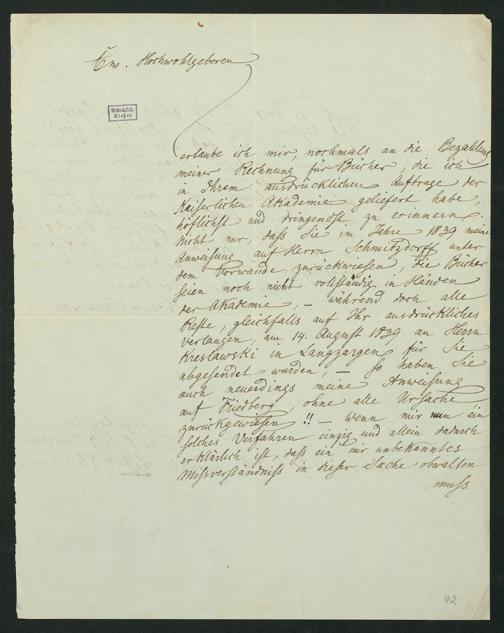 Ew. Hochwohlgeboren
erlaube ich mir, nochmals an die Bezahlung
meiner Rechnung für Bücher, die ich
in Ihrem ausdrücklichen Auftrage der
Kaiserlichen Akademie geliefert habe,
höflichst und dringendst zu erinnern.
Nicht nur, daß Sie im Jahre 1839 meine
Anweisung auf Herrn Schmitzdorff unter
dem Vorwande zurückwiesen, die Bücher
seien noch nicht vollständig in Händen
der Akademie, – während doch alle
Reste, gleichfalls auf Ihr ausdrückliches
Verlangen, am 14. August 1839 an Herrn
in Langzargen für Sie
abgesendet wurden, – so haben Sie
auch neuerdings meine Anweisung
auf Friedberg ohne alle Ursache
zurückgewiesen!! – Wenn mir nun ein
solches Verfahren einzig und allein dadurch
erklärlich ist, daß ein mir unbekanntes
Missverständniss in dieser Sache obwalten
muss
42